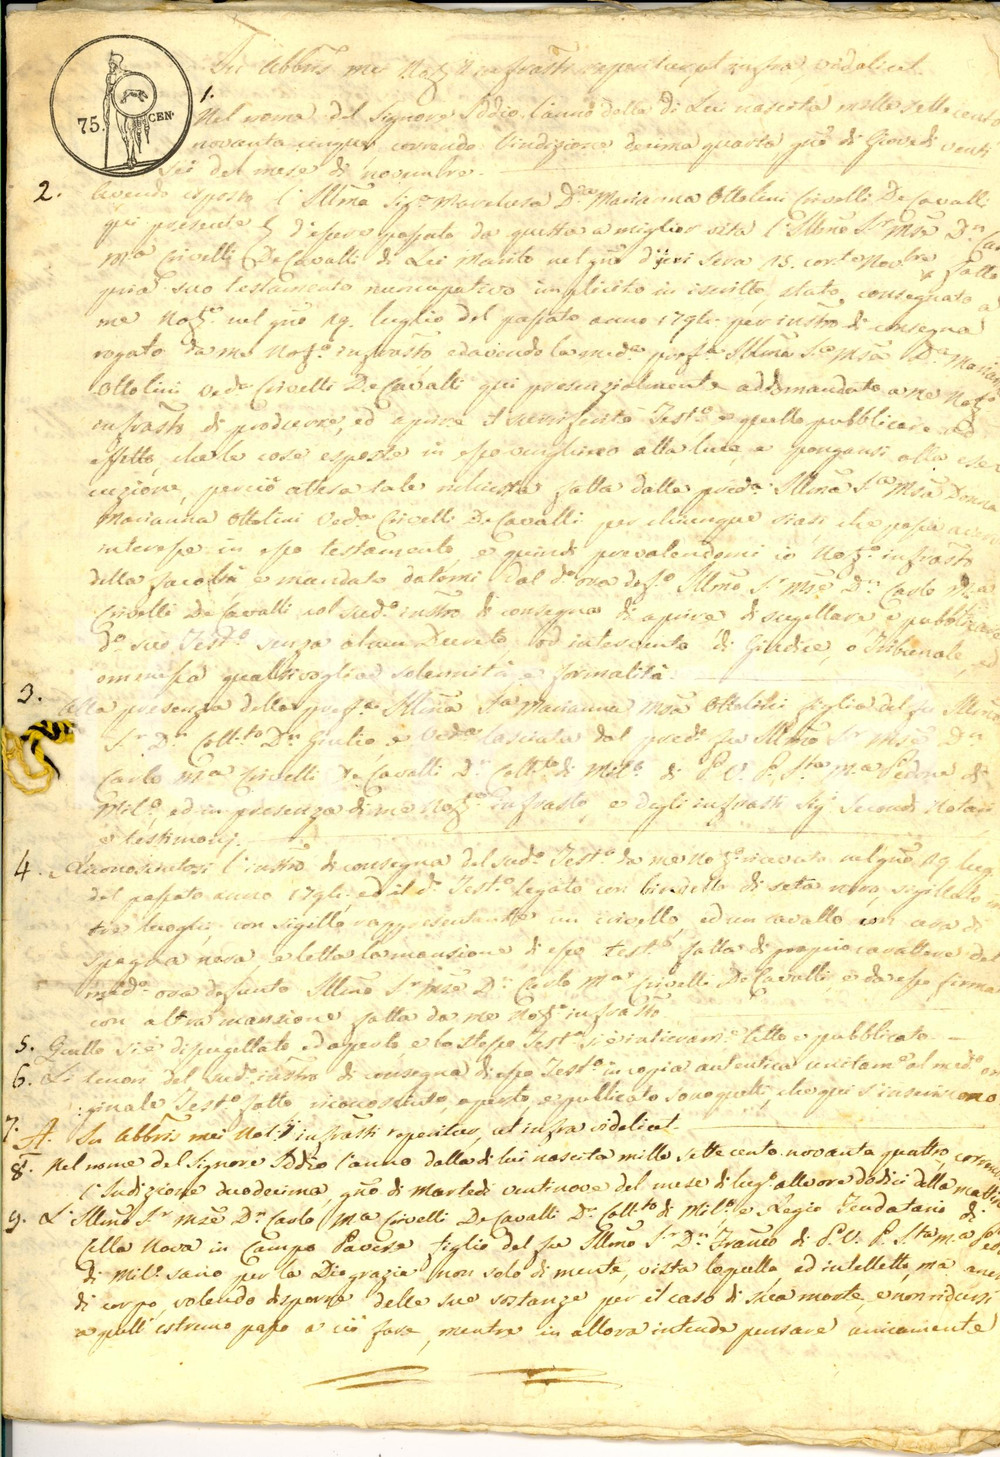 75. CEN.
In Abbris mei Not.i infrasti reperitur, ut infra videlicet
1.
Nel nome del Signore Iddio l'anno dalla di Lui nascita mille settecento
novanta cinque correndo l'indizione decima quarta gno di Giovedi venti
sei del mese di novembre.
2. Avendo esposto l'Illma Sig.ra Marchesa D.na Marianna Ottolini Crivelli De Cavalli
qui presente d'essere passato da questa a miglior vita l'Illmo S.r Mse D.n Car
M.a Crivelli De Cavalli di Lei Marito nel gno d'jeri sera 25. corr.te Nov.bre fatto
pria suo testamento nuncupativo implicito in iscritto, stato consegnato a
me Not.o nel gno 29. luglio del passato anno 1794. per instro di consegna
rogato da me Not.o infrasto ed avendo la med.a pref.a Illma S.a Msa D.a Marian
Ottolini ved.a Crivelli De Cavalli qui presenzialmente addomandato a me Not.o
infrasto di produrre, ed aprire il surriferito Test.o e quello pubblicare ad
effetto, che le cose esposte in esso venghino alla luce, e pongansi alla ese
cuzione, perciò attesa tale richiesta fatta dalla pred.a Illma S.a Msa Donna
Marianna Ottolini Ved.a Crivelli De Cavalli per chiunque siasi, che possa avere
interesse in esso testamento, e quindi prevalendomi io Not.o infrasto
della facoltà e mandato datomi dal d.o ora def.o Illmo S.r Mse D.n Carlo M.a
Crivelli De Cavalli col sud.o instro di consegna di aprire disuggellare e pubblicare
d.o suo Test.o senza alcun Decreto, od intervento di Giudice, o Tribunale, ed
ommessa qualsivoglia solennità e formalità.
3. Alla presenza della pref.a Illma S.a Marianna Msa Ottolini figlia del fu Illmo
S.r D.n Coll.to D.n Giulio, e Ved.a lasciata dal pred.o fu Illmo S.r Mse D.n
Carlo M.a Crivelli De Cavalli D.n Coll.to di Mil.o di P. V. P. S.ta M.a Pedone di
Mil.o, ed in presenza di me Not.o infrasto, e degli infrasti Sig.i Secondi Notari
e testimonj.
4. Riconosciutosi l'instro di consegna del sud.o Test.o da me Not.o ricevuto nel gno 29 lug.
del passato anno 1794. ed il d.o Test.o legato con bindello di seta nera, sigillato in
tre luoghi, con sigillo rappresentante un crivello, ed un cavallo con cera di
spagna nera, e letta la mansione di esso test.o fatta di proprio carattere del
med.o ora defunto Illmo S.r Mse D.n Carlo M.a Crivelli De Cavalli, e da esso firma
con altra mansione fatta da me Not.o infrasto
5. Quello si è disugellato ed aperto, e lo stesso Test.o si è interam.e letto e pubblicato.
6. Li tenori del sud.o instro di consegna di esso Test.o in copia autentica unitam.e al med.o ori
ginale Test.o fatto riconosciuto, aperto, e pubblicato sono quelli, che qui s'inseriscono
7. A. In Abbris mei Not.i infrasti reperitur, ut infra videlicet.
8. Nel nome del Signore Iddio l'anno dalla di lui nascita mille sette cento novanta quattro, corren
l'Indizione duodecima, gno di Martedi ventinove del mese di lug.o alle ore dodici della mattina
9. L'Illmo S.r Mse D.n Carlo M.a Crivelli De Cavalli D.n Coll.to di Mil.o e Regio Feudatario di
Cella Nova in Campo Pavese figlio del fu Illmo S.r D.n Franco di P. V. P. S.ta M.a
di Mil.o sano per la Dio grazia non solo di mente, vista loquella, ed intelletto, ma anche
di corpo, volendo disporre delle sue sostanze per il caso di sua morte, e non ridursi
a quell'estremo passo a ciò fare, mentre in allora intende pensare unicamente